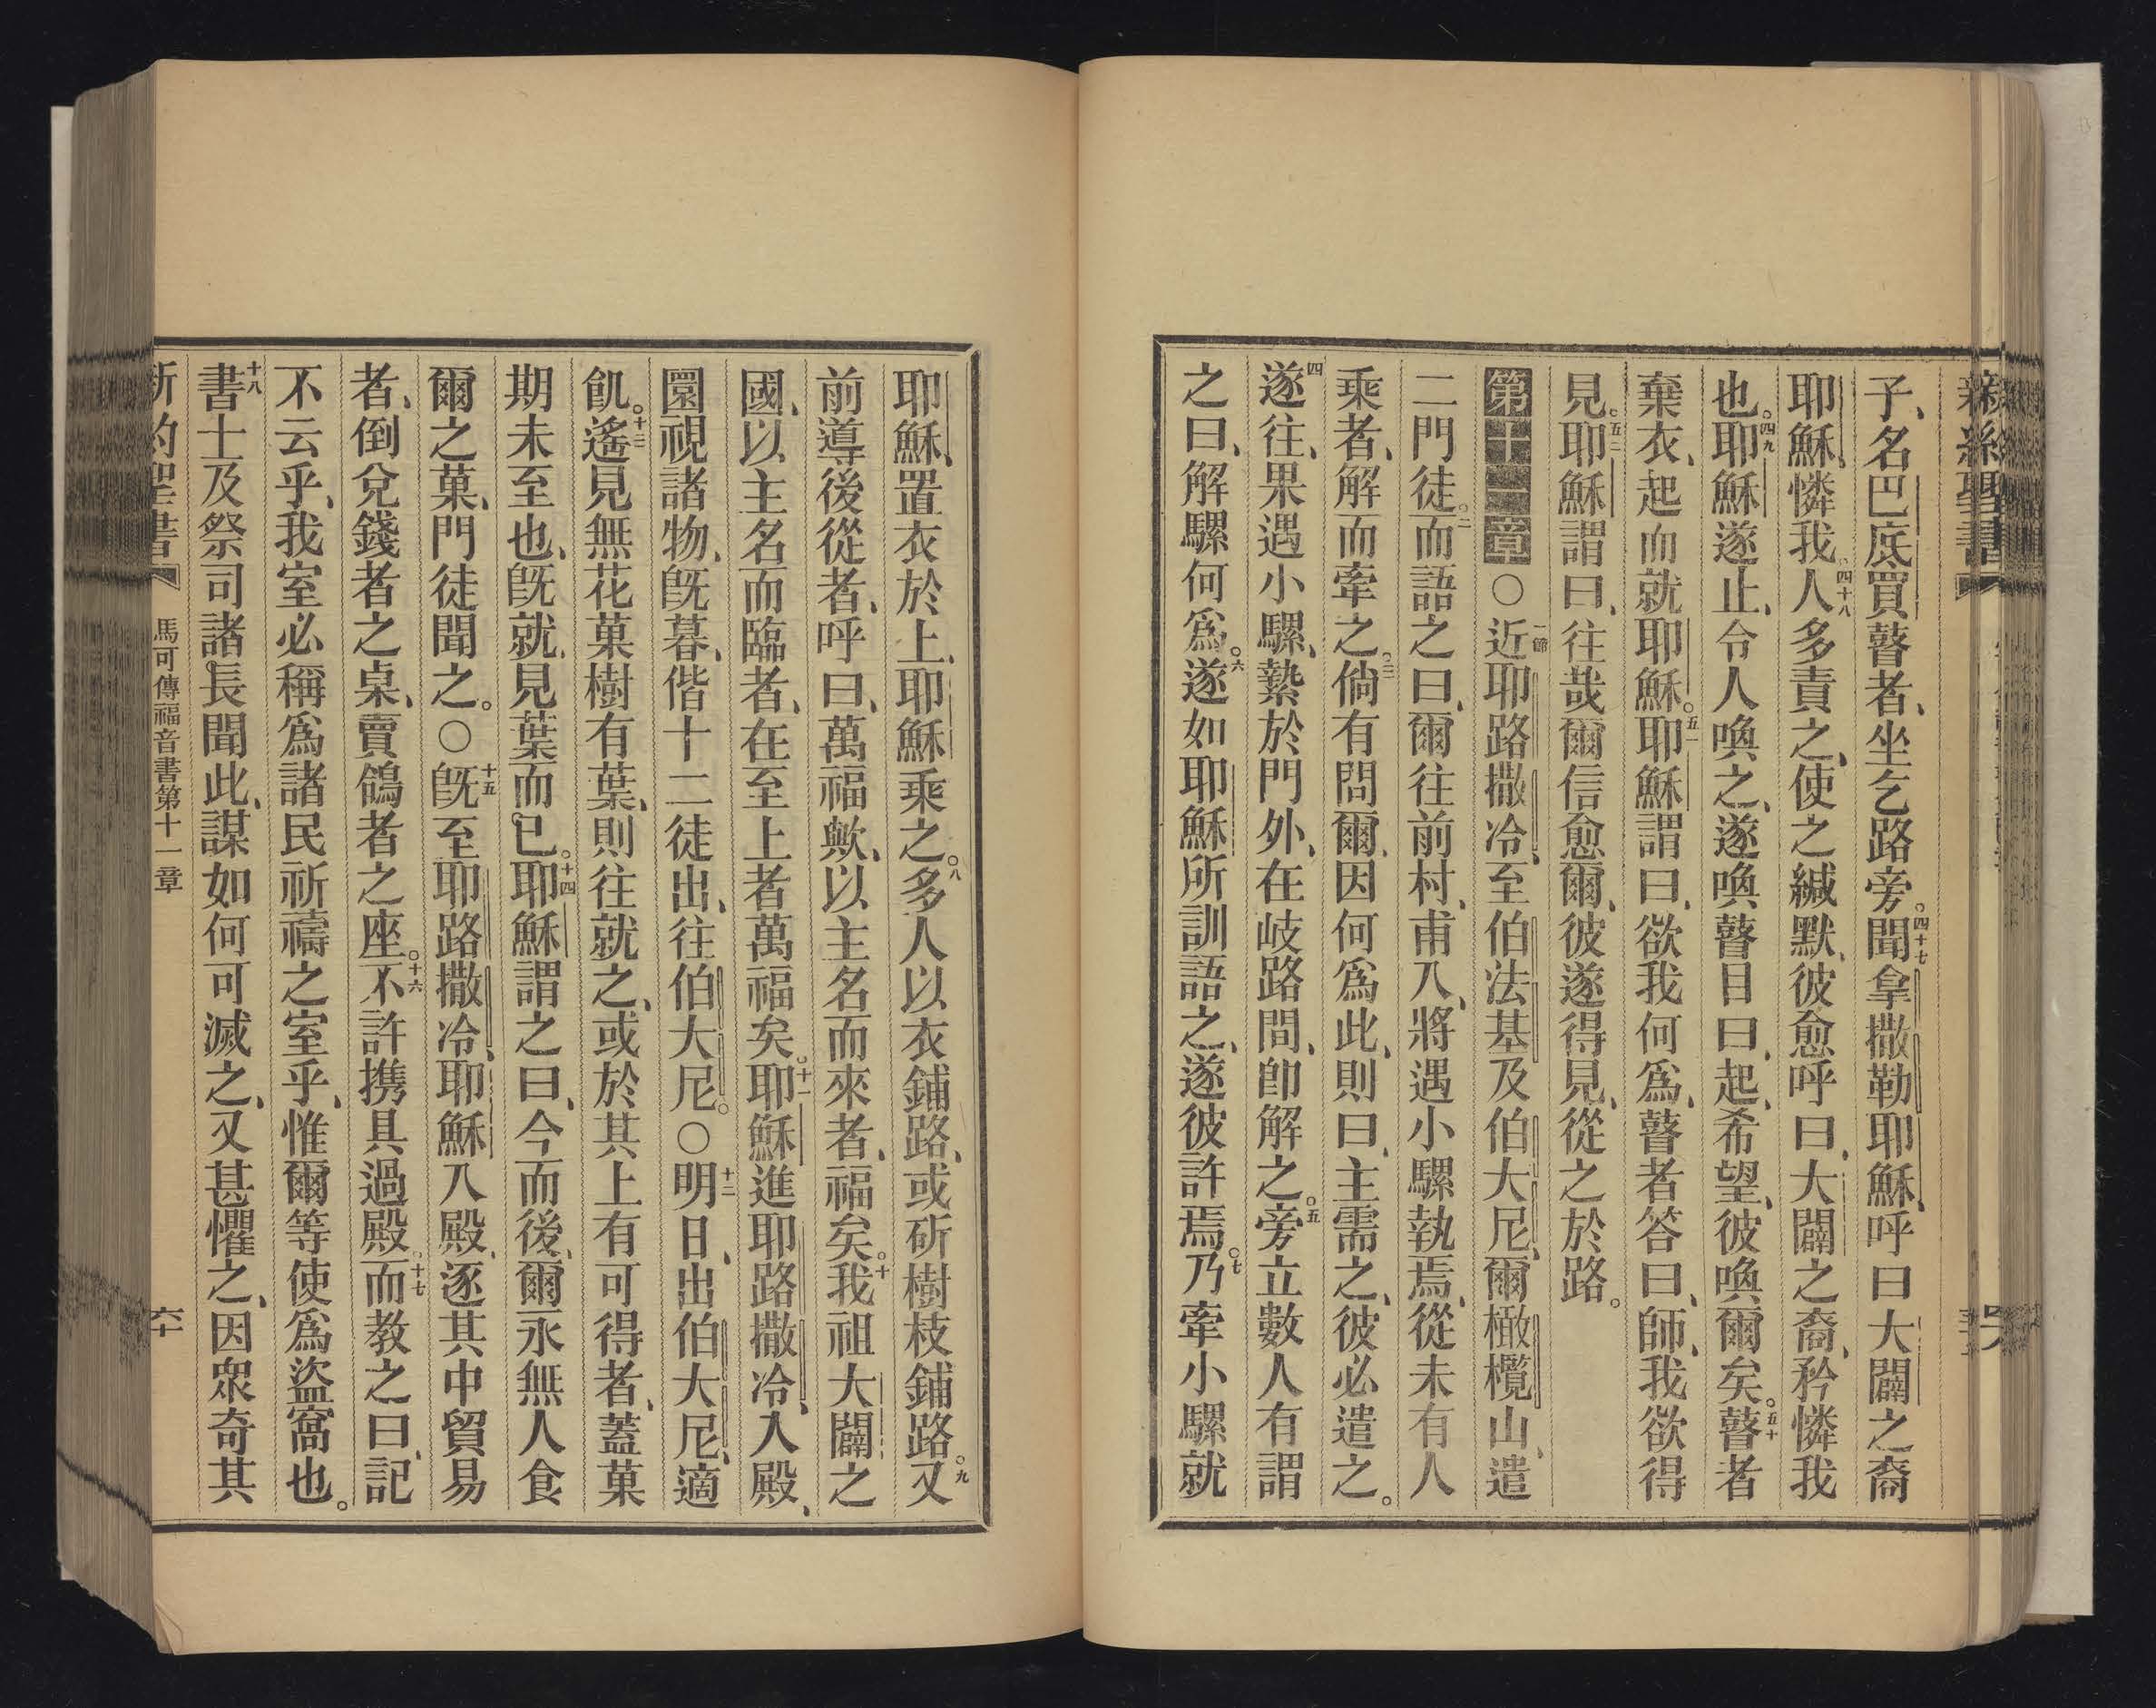 新約聖書
子、名巴底買瞽者、坐乞路旁。四十七聞拿撒勒耶穌、呼曰大闢之裔
耶穌、憐我。四十八人多責之、使之緘默、彼愈呼曰、大闢之裔、矜憐我
也。四九耶穌遂止、令人喚之、遂喚瞽目曰、起、希望、彼喚爾矣。五十瞽者
棄衣、起而就耶穌。五一耶穌謂曰、欲我何爲、瞽者答曰、師、我欲得
見。五二耶穌謂曰、往哉爾信愈爾、彼遂得見、從之於路。
第十一章○一節近耶路撒冷、至伯法基及伯大尼、爾橄欖山、遣
二門徒。二而語之曰、爾往前村、甫入、將遇小騾執焉、從未有人
乘者、解而牽之。三倘有問爾、因何爲此、則曰、主需之、彼必遣之。
四遂往、果遇小騾、縶於門外、在岐路間、卽解之。五旁立數人有謂
之曰、解騾何爲。六遂如耶穌所訓語之、遂彼許焉。七乃牽小騾就
耶穌、置衣於上、耶穌乘之。八多人以衣鋪路、或斫樹枝鋪路。九又
前導後從者、呼曰、萬福歟、以主名而來者、福矣。十我祖大闢之
國、以主名而臨者、在至上者萬福矣。十一耶穌進耶路撒冷、入殿、
圜視諸物、旣暮、偕十二徒出、往伯大尼。○十二明日、出伯大尼、適
飢。十三遙見無花菓樹有葉、則往就之、或於其上有可得者、蓋菓
期未至也、旣就、見葉而已。十四耶穌謂之曰、今而後、爾永無人食
爾之菓、門徒聞之。○十五旣至耶路撒冷、耶穌入殿、逐其中貿易
者、倒兌錢者之桌、賣鴿者之座。十六不許携具過殿。十七而教之曰、記
不云乎、我室必稱爲諸民祈禱之室乎、惟爾等使爲盜窩也。
十八書士及祭司諸長聞此、謀如何可滅之、又甚懼之、因衆奇其
新約聖書 馬可傳福音書第十一章 六十